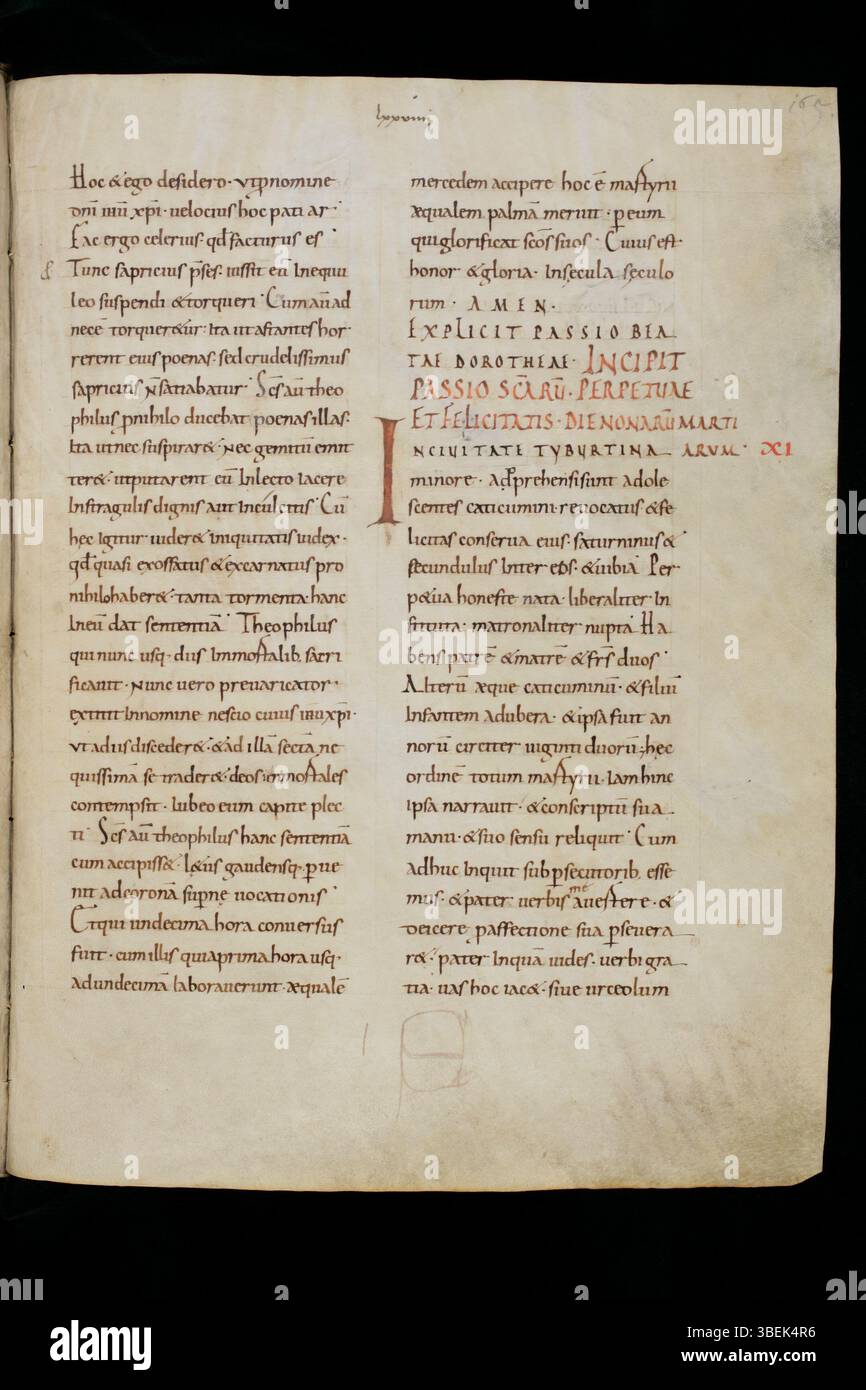 lxxviiii
Hoc & ego desidero · ut ꝑ nomine
dn̄i ihū xp̄i · uelocius hoc patiar ·
Fac ergo celerius · qđ facturus es ·
& Tunc sapricius p̄ses · iussit eū in equu
leo suspendi & torqueri · Cum aū ad
necē torquer&ur · ita ut astantes hor
rerent eius poenas · sed crudelissimus
sapricius n̄ satiabatur · Scs̄ aū theo
philus ꝓ nihilo ducebat poenas illas ·
Ita ut nec suspirar& · nec gemitū emit
ter& · ut putarent eū in lecto iacere
In stragulis dignis aut in culcitis · Cū
hec igitur uider& iniquitatis iudex ·
qđ quasi exossatus & excarnatus pro
nihilo haber& · tanta tormenta · hanc
In eū dat sententiā · Theophilus
qui nunc usq · diis immortalib · sacri
ficauit · nunc uero preuaricator ·
extitit in nomine nescio cuius ihū xp̄i ·
ut a diis disceder& · & ad illā sectā ne
quissimā se trader& · deos immortales
contempsit · Iubeo eum capite plec
ti · Scs̄ aū theophilus hanc sententiā
cum accipiss& · l&us gaudensq · ꝑue
nit ad coronā supn̄e uocationis ·
Et qui undecima hora conuersus
fuit · cum illis qui a prima hora usq ·
ad undecimā laborauerunt · æqualē
mercedem accipere hoc ē martyrii
æqualem palmā meruit · ꝑ eum
qui glorificat scōs suos · Cuius est
honor & gloria · In secula seculo
rum · AMEN ·
EXPLICIT PASSIO BEA
TAE DOROTHEAE · INCIPIT
PASSIO SCĀRŪ · PERPETUAE
ET FELICITATIS · DIE NONARŪ MARTI
INCIVITATE TYBURTINA ARUM · XI
minore · adprehensi sunt adole
scentes caticumini · reuocatus & fe
licitas conserua eius · saturninus &
secundulus · Inter eos · & uibia Per
p&ua honeste nata · liberaliter in
stituta · matronaliter nupta · Ha
bens patrē & matrē & frs̄ duos ·
Alterū æque caticuminū · & filiū
infantem ad ubera · & ipsa fuit an
norū circiter uiginti duorū · hęc
ordinē totum martyrii · iam hinc
ipsa narrauit · & conscriptū sua
manu · & suo sensu reliquit · Cum
adhuc inquit sub ꝑsecutorib · esse
mus · & pater uerbis me auertere · &
deicere ꝑ affectione sua ꝑseuera
r& · pater inquā uides · uerbi gra
tia · uas hoc iac& · siue urceolum
alamy
Image ID: 3BEK4R6
www.alamy.com